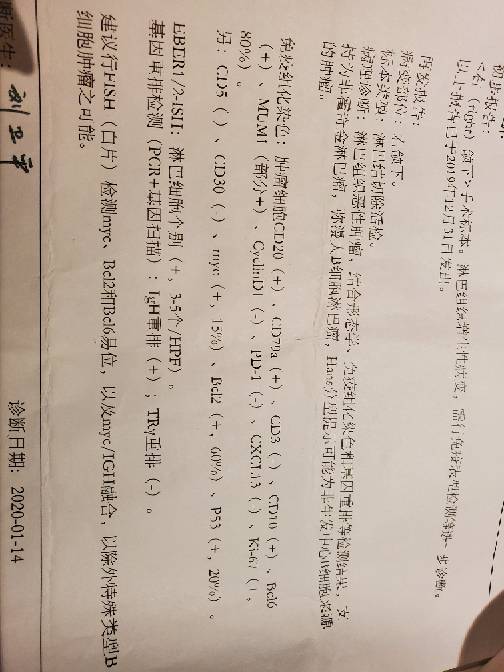 初步报告:
<右(right)颌下>手术标本。淋巴组织增生性病变,需行免疫表型检测等进一步诊断。
以上报告已于2019年12月31日发出。
病变部位:右颌下。
标本类型:淋巴结切除活检。
病理诊断:淋巴组织恶性肿瘤,结合形态学、免疫组化染色和基因重排等检测结果,支
持为非霍奇金淋巴瘤,弥漫大B细胞淋巴瘤,Hans分型提示可能为非生发中心B细胞来源
的肿瘤。
免疫组化染色:肿瘤细胞CD20(+)、CD79a(+)、CD3(-)、CD10(+)、Bcl6
(+)、MUM1(部分+)、CyclinD1(-)、PD-1(-)、CXCL13(-)、Ki-67(+,
80%)。
另:CD5(-)、CD30(-)、myc(+,15%)、Bcl2(+,60%)、P53(+,20%)。
EBER1/2-ISH:淋巴细胞个别(+,3-5个/HPF)。
基因重排检测(PCR+基因扫描):IgH重排(+);TRγ重排(-)。
建议行FISH(白片)检测myc、Bcl2和Bcl6易位,以及myc/IGH融合,以除外特殊类型B
细胞肿瘤之可能。
断医生:
诊断日期:2020-01-14